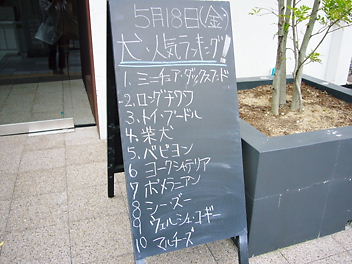 5月18日(金)
犬・人気ランキング!
1. ミニチュア・ダックスフンド
2. ロングチワワ
3. トイ・プードル
4. 柴犬
5. パピヨン
6 ヨークシャテリア
7 ポメラニアン
8 シー・ズー
9 ウェルシュ・コーギー
10 マルチーズ